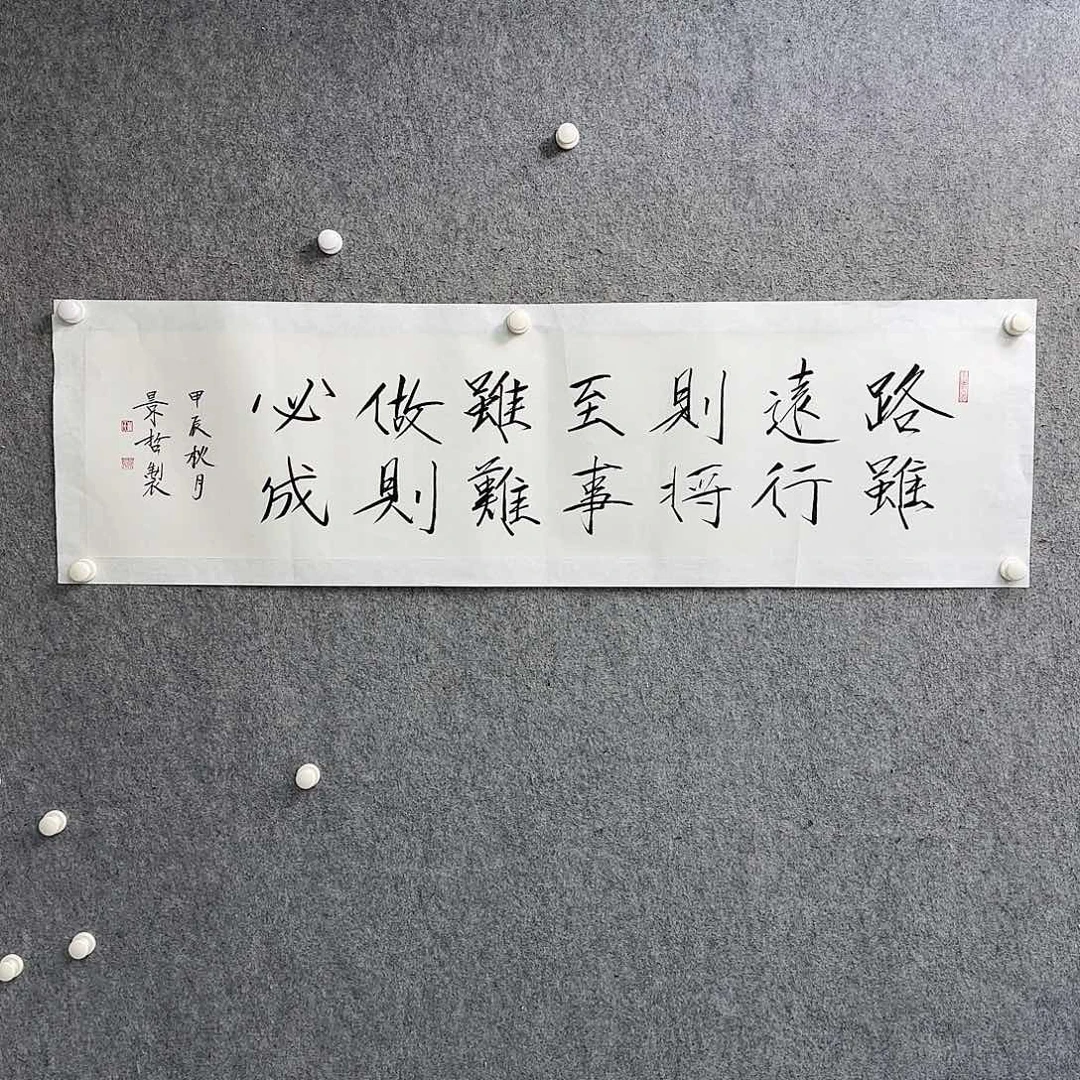 路雖
遠行
則将
至事
雖難
做則
必成
甲辰秋月
景哲製